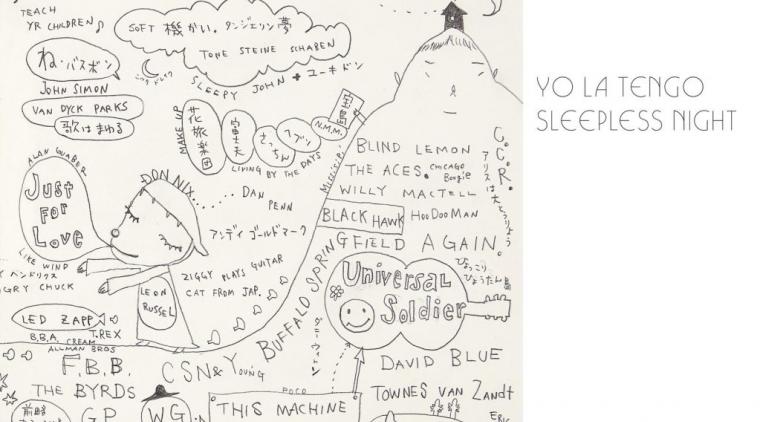 TEACH
YR CHILDREN♪
SOFT 機かい。タンジェリン夢
TONE STEINE SCHABEN
ね・バスボン
SLEEPY JOHN + ユーキドン
JOHN SIMON
VAN DYCK PARKS
歌はまわる
MAKE UP
花旅楽団
さっちん
N.M.M.
LIVING BY THE DAYS
Mississippi
C.C.R.
BLIND LEMON
THE ACES. CHICAGO Boogie
WILLY MACTELL
BLACK HAWK HOODOOMAN
アリスは大とうりょう。
ALAN
Just
For
Love
DON NIX........ DAN
PENN
アンディ ゴールドマーク
BUFFALO SPRINGFIELD AGAIN.
ひょっこり
ひょうたん島
LIKE WIND
ヘンドリクス
GRY CHUCK
ZIGGY PLAYS GUITAR
CAT FROM JAP.
LEON
RUSSEL
UniverSAL
Soldier
LED ZAPP
T.REX
B.B.A. CREAM
ALLMAN BROS
ダニーウィットン
F.B.B.
CSN& Young
DAVID BLUE
THE BYRDS
POCO
TOWNES VAN Zandt
前略
GP
WG
THIS MACHINE
ERIC
YO LA TENGO
SLEEPLESS NIGHT